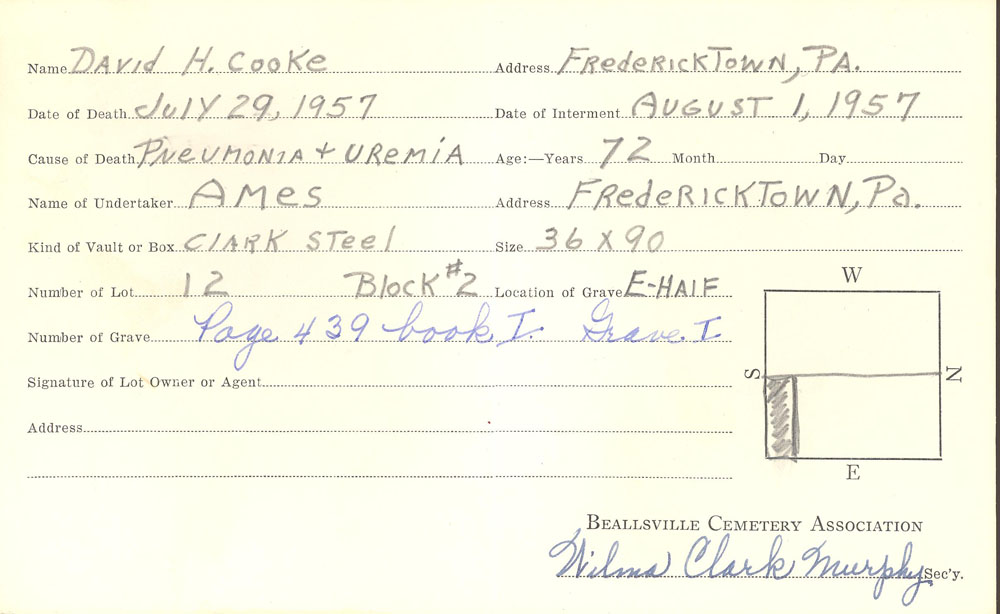 Name David H. Cooke Address Fredericktown, Pa.
Date of Death July 29, 1957 Date of Interment August 1, 1957
Cause of Death Pneumonia + Uremia Age:—Years 72 Month Day
Name of Undertaker Ames Address Fredericktown, Pa.
Kind of Vault or Box Clark Steel Size 36 x 90
Number of Lot 12 Block #2 Location of Grave E-Half
Number of Grave Page 439 book I. Grave I
Signature of Lot Owner or Agent
Address
W
S
N
E
Beallsville Cemetery Association
Wilma Clark Murphy Sec'y.